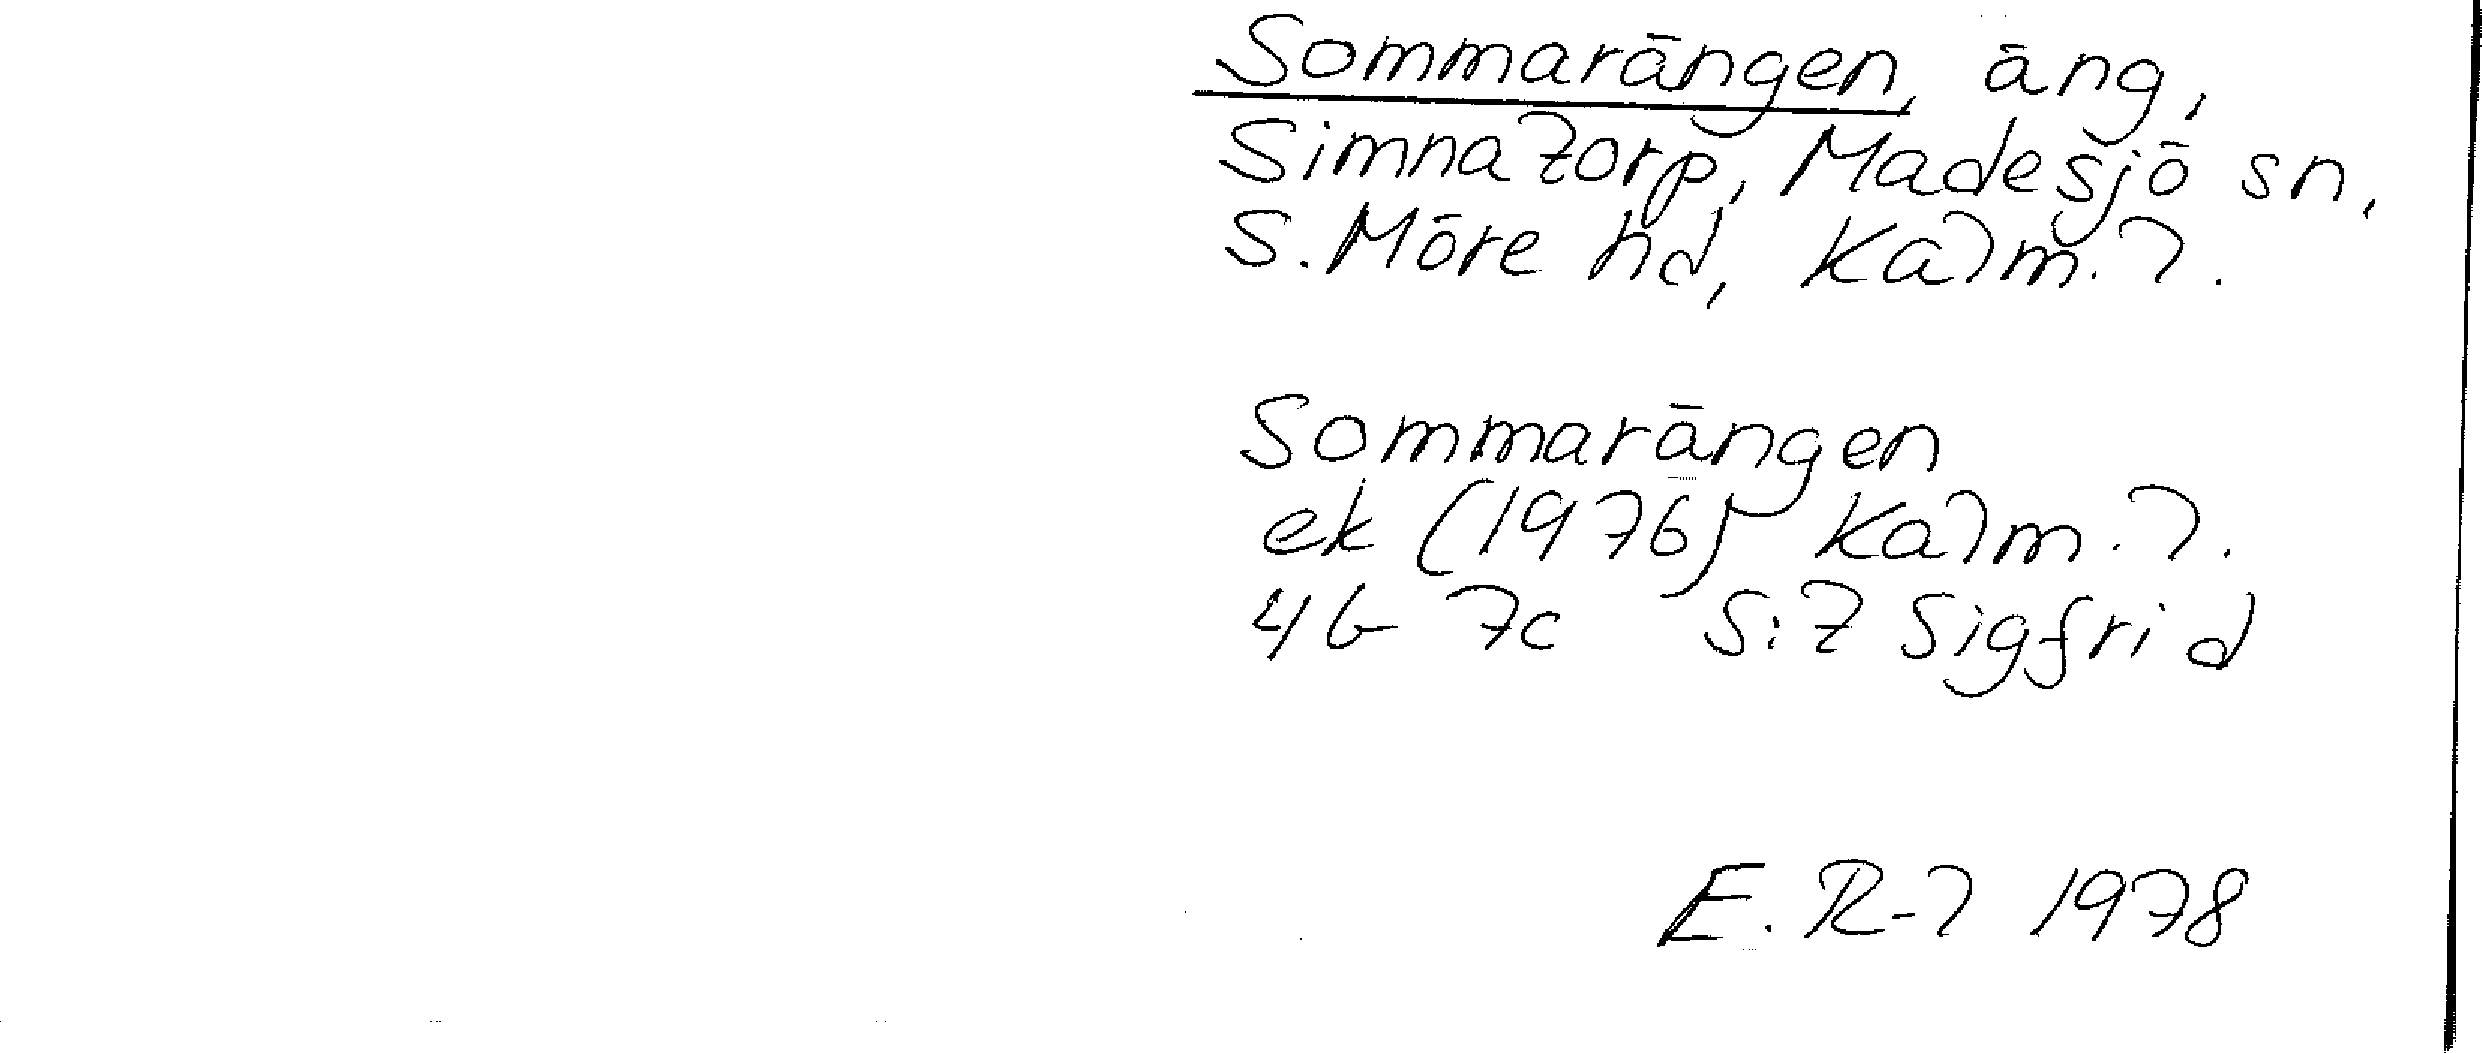 Sommarängen, äng,
Simnatorp, Madesjö sn,
S. Möre hd, Kalm. l.
Sommarängen
ek (1976) Kalm. l.
4G 7c S:t Sigfrid
E. R-l 1978